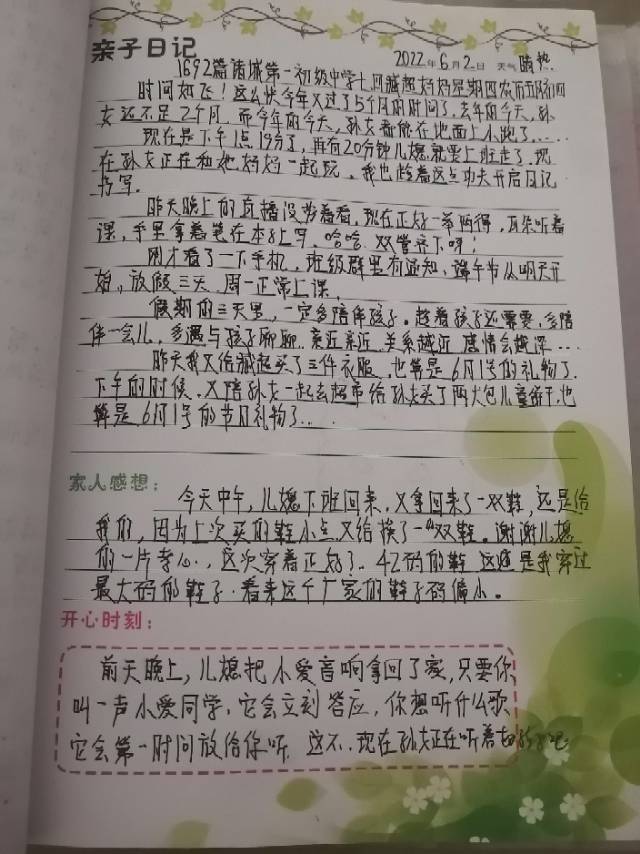 亲子日记 2022年6月2日 天气晴热
1692篇诸城第一初级中学七 臧超妈妈星期四农历五月初四
时间如飞！这么快今年又过了5个月的时间了，去年的今天，孙
女还不足2个月，而今年的今天，孙女都能在地面上小跑了……
现在是下午1点19分了，再有20分钟儿媳就要上班走了，现
在孙女正在和她妈妈一起玩。我也趁着这点功夫开启日记
书写。
昨天晚上的直播没当着看，现在正好一举两得，耳朵听着
课，手里拿着笔在本上写，哈哈，双管齐下呀！
刚才看了一下手机，班级群里有通知，端午节从明天开
始，放假三天，周一正常上课。
假期的三天里，一定多陪伴孩子。趁着孩子还需要，多陪
伴一会儿，多遇与孩子聊聊，亲近亲近，关系越近感情会越深…
昨天我又给臧超买了三件衣服，也算是6月1号的礼物了，
下午的时候，又陪孙女一起去超市给孙女买了两大包儿童饼干，也
算是6月1号的节日礼物了…
家人感想：
今天中午，儿媳下班回来，又拿回来了一双鞋，还是给
我的，因为上次买的鞋小点又给换了一双鞋。谢谢儿媳
的一片孝心，这次穿着正好了。42码的鞋，这还是我穿过
最大码的鞋子，看来这个厂家的鞋子码偏小。
开心时刻：
前天晚上，儿媳把小爱音响拿回了家，只要你
叫一声小爱同学，它会立刻答应，你想听什么歌
它会第一时间放给你听，这不，现在孙女正在听着